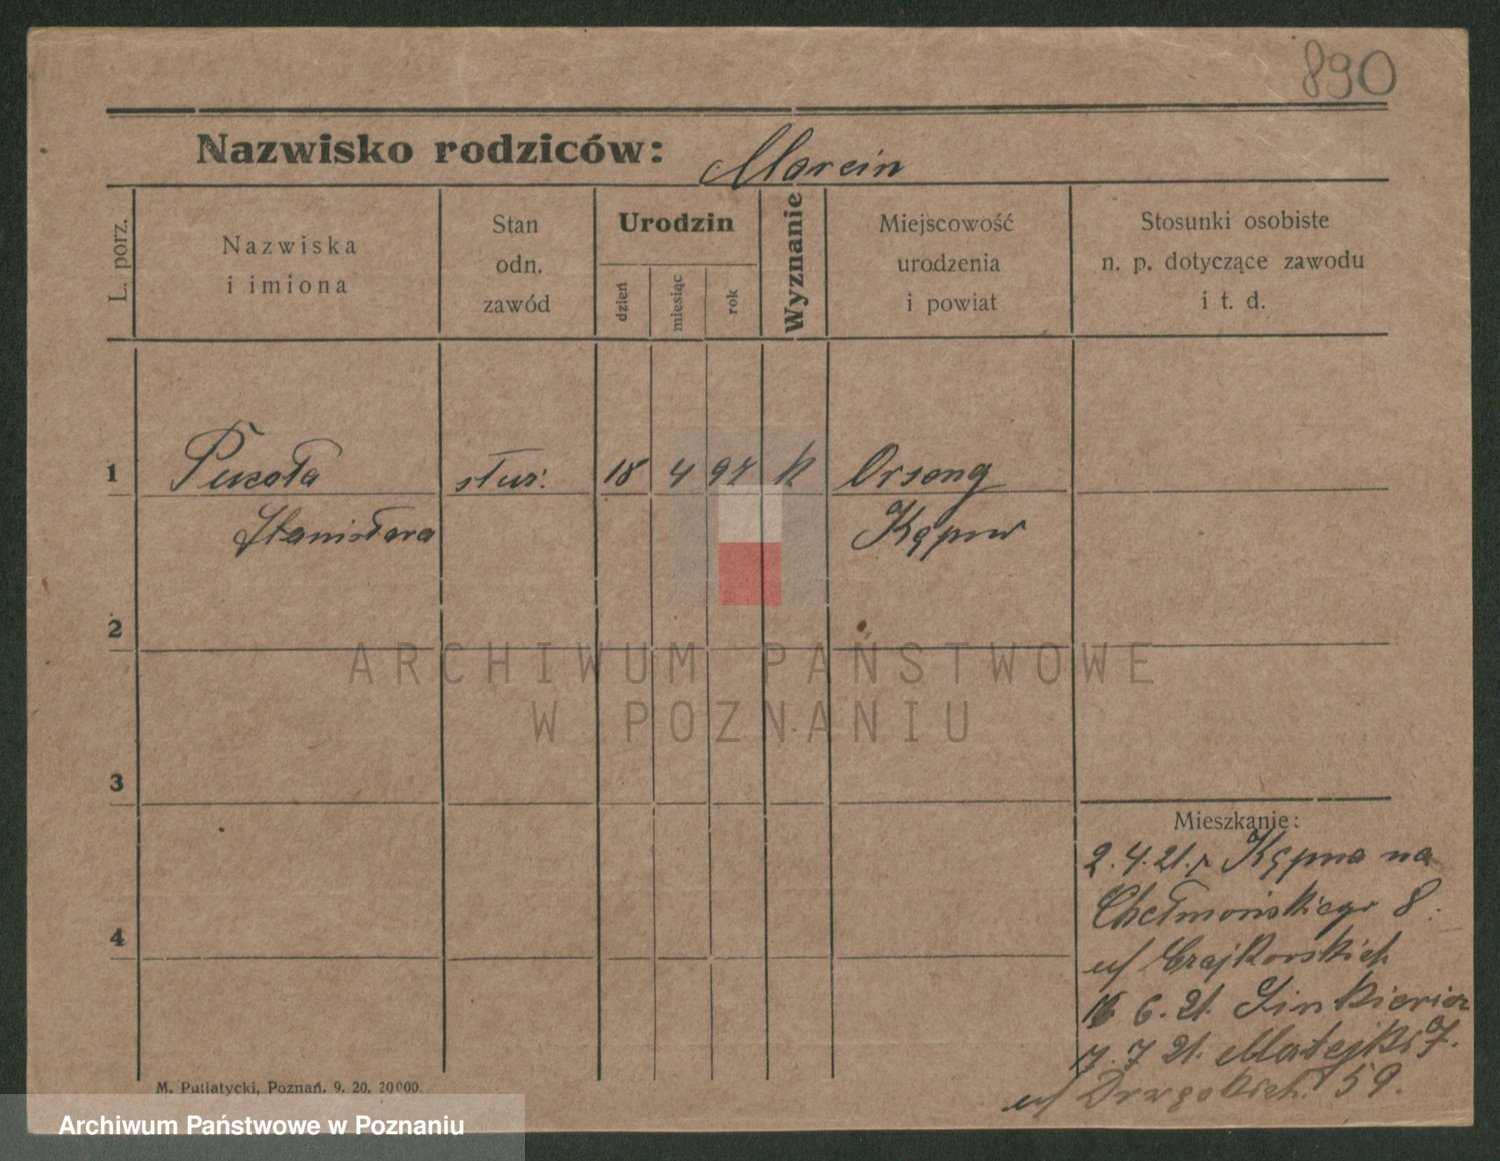 890
Nazwisko rodziców: Marcin
L. porz.
Nazwiska
i imiona
Stan
odn.
zawód
Urodzin
dzień
miesiąc
rok
Wyznanie
Miejscowość
urodzenia
i powiat
Stosunki osobiste
n. p. dotyczące zawodu
i t. d.
1 Puzoła służ. 18 4 97 k
Stanisława Kępno
2
ARCHIWUM PAŃSTWOWE
W POZNANIU
3
Mieszkanie:
2.4.21. z Kępna na
Chełmońskiego 8.
4
u/ Czajkowskich
16 6. 21.
7. 7 21. Matejki 7.
u/ 59.
M. Putiatycki, Poznań. 9. 20. 20000.
Archiwum Państwowe w Poznaniu